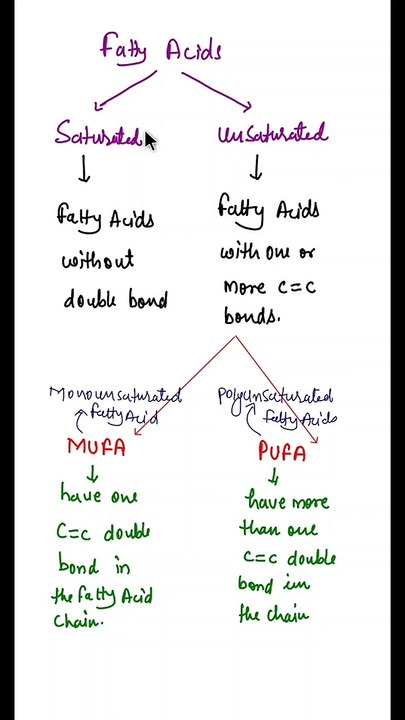 Fatty Acids
Saturated
unsaturated
fatty Acids
without
double bond
fatty Acids
with one or
more C=C
bonds.
Monounsaturated
fatty Acid
MUFA
have one
C=C double
bond in
the fatty Acid
Chain.
polyunsaturated
fatty Acids
PUFA
have more
than one
C=C double
bond in
the chain